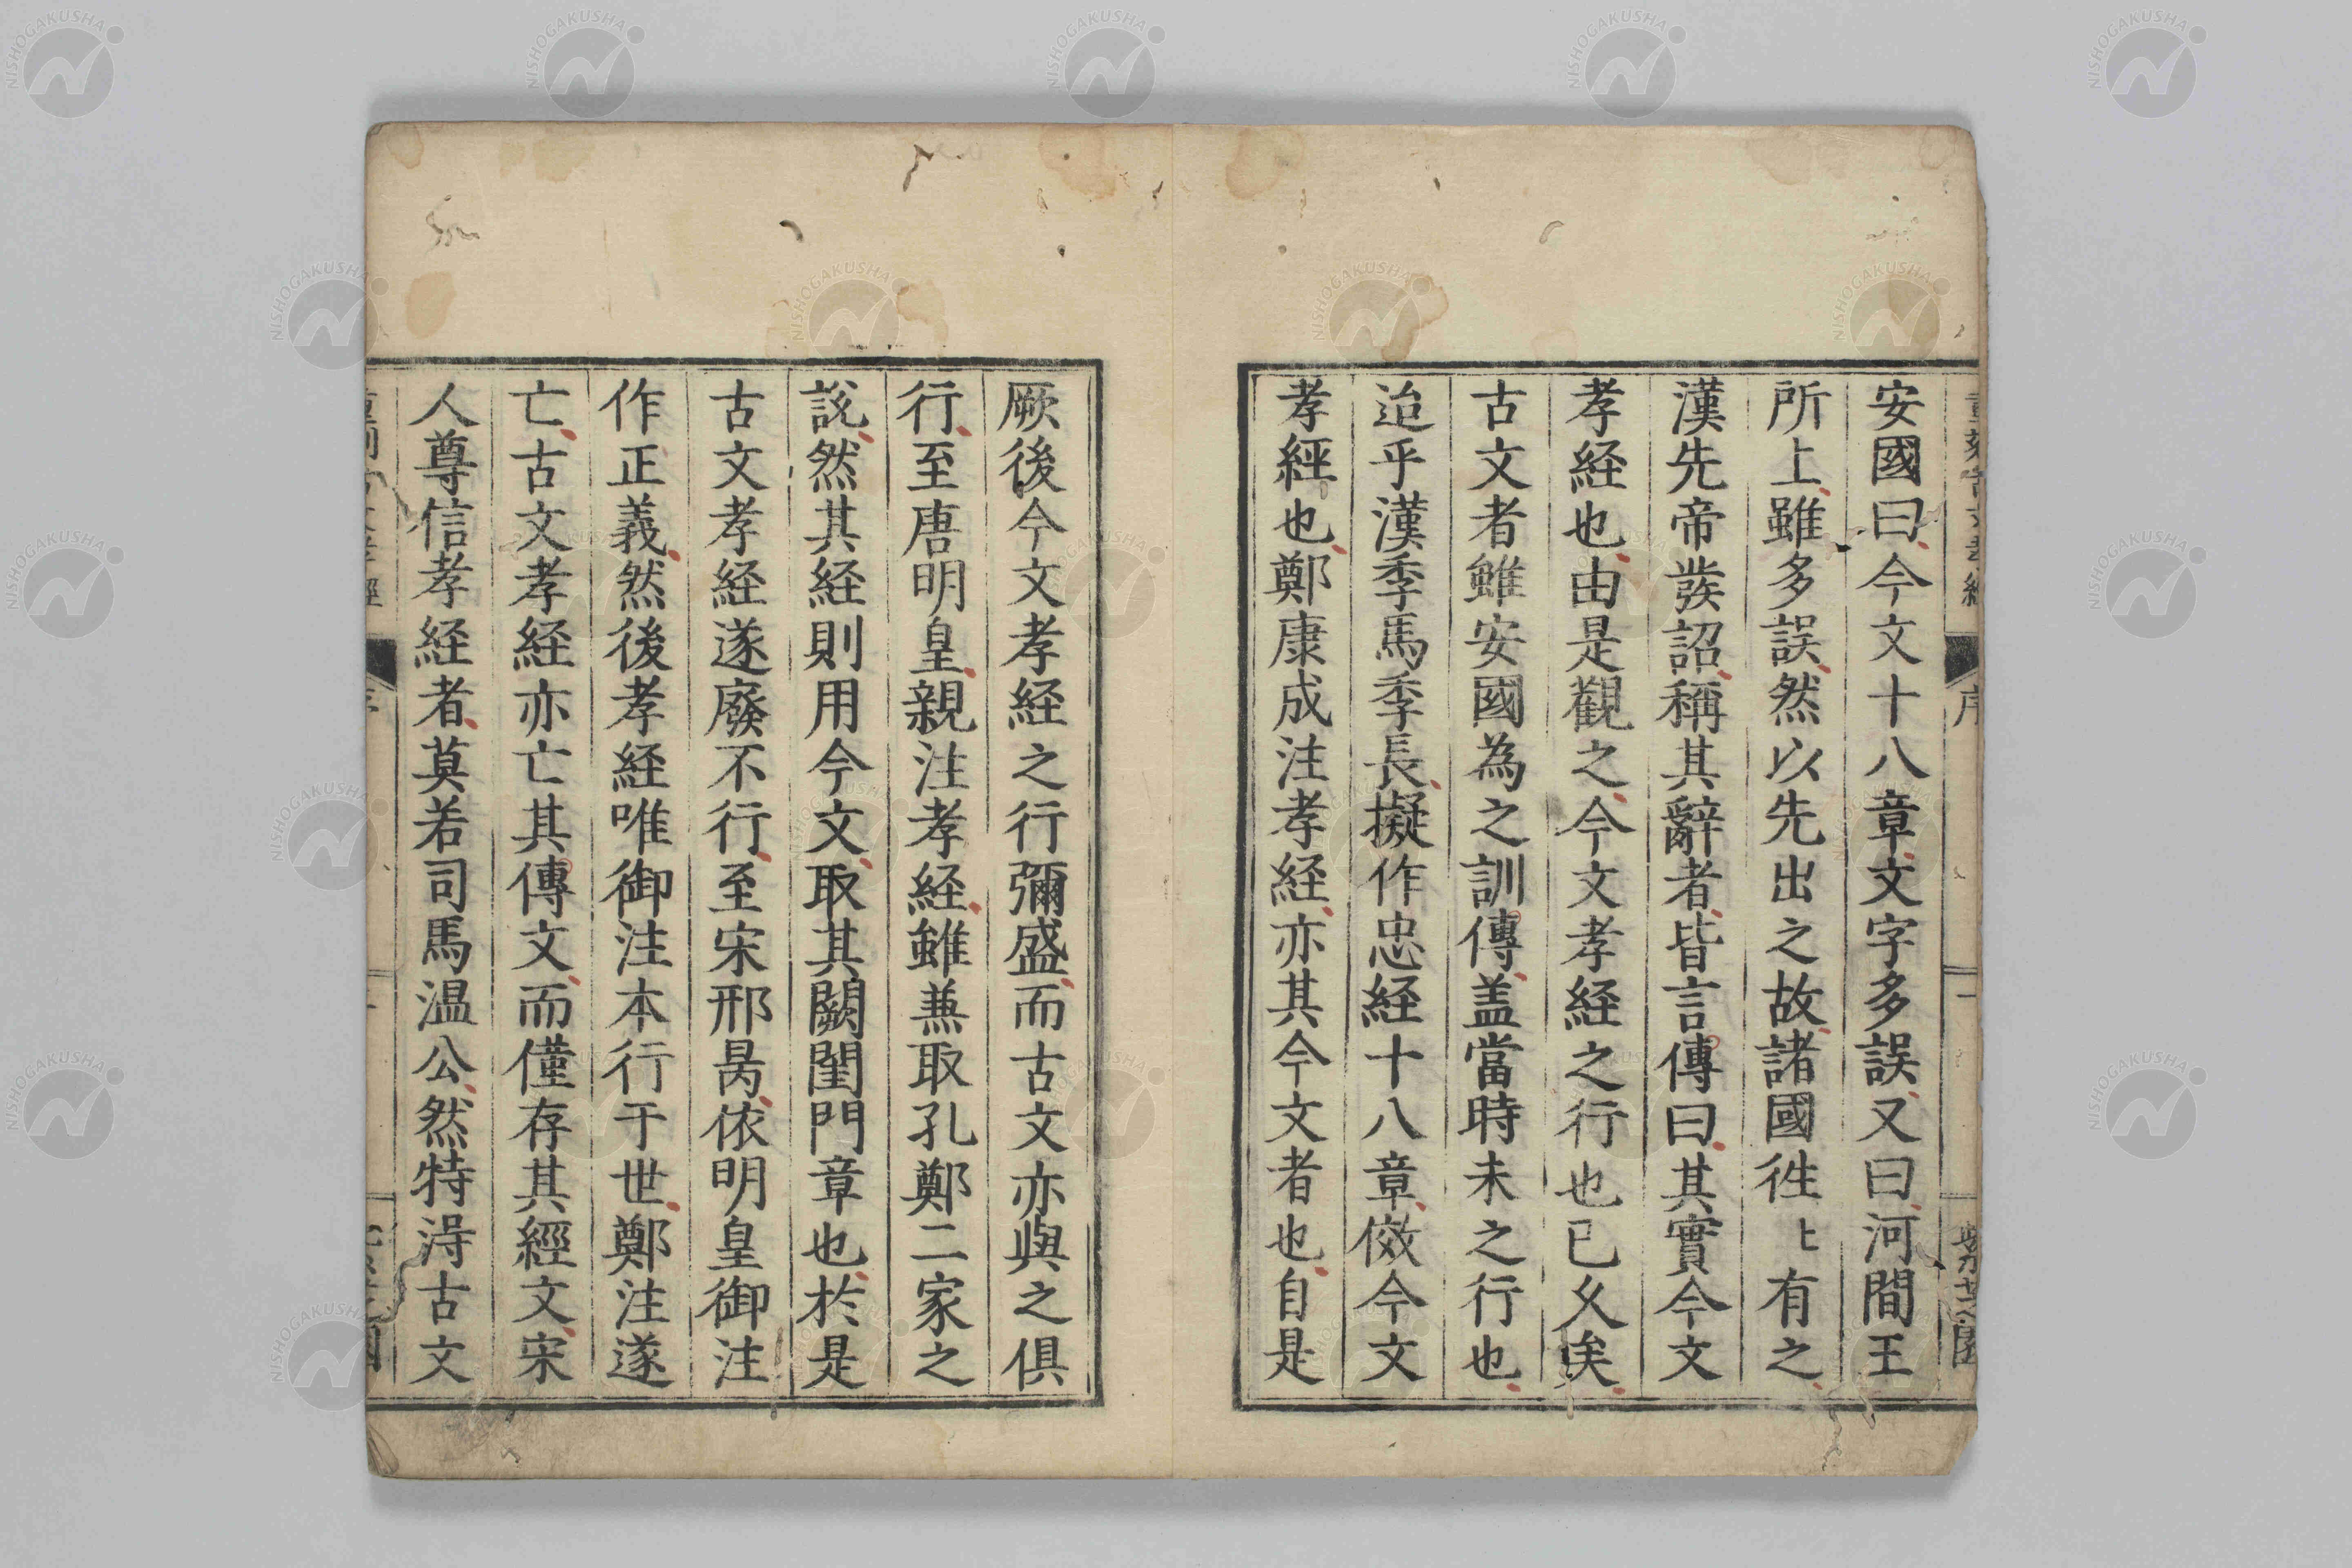 安國曰今文十八章文字多誤又曰河間王
所上雖多誤然以先出之故諸國徃〻有之
漢先帝發詔稱其辭者皆言傳曰其實今文
孝経也由是觀之今文孝経之行也已久矣
古文者雖安國為之訓傳盖當時未之行也
迨乎漢季馬季長擬作忠経十八章傚今文
孝經也鄭康成注孝経亦其今文者也自是
厥後今文孝経之行彌盛而古文亦與之俱
行至唐明皇親注孝経雖兼取孔鄭二家之
説然其経則用今文取其闕閨門章也於是
古文孝経遂廢不行至宋邢昺依明皇御注
作正義然後孝経唯御注本行于世鄭注遂
亡古文孝経亦亡其傳文而僅存其經文宋
人尊信孝経者莫若司馬温公然特淂古文
NISHOGAKUSHA